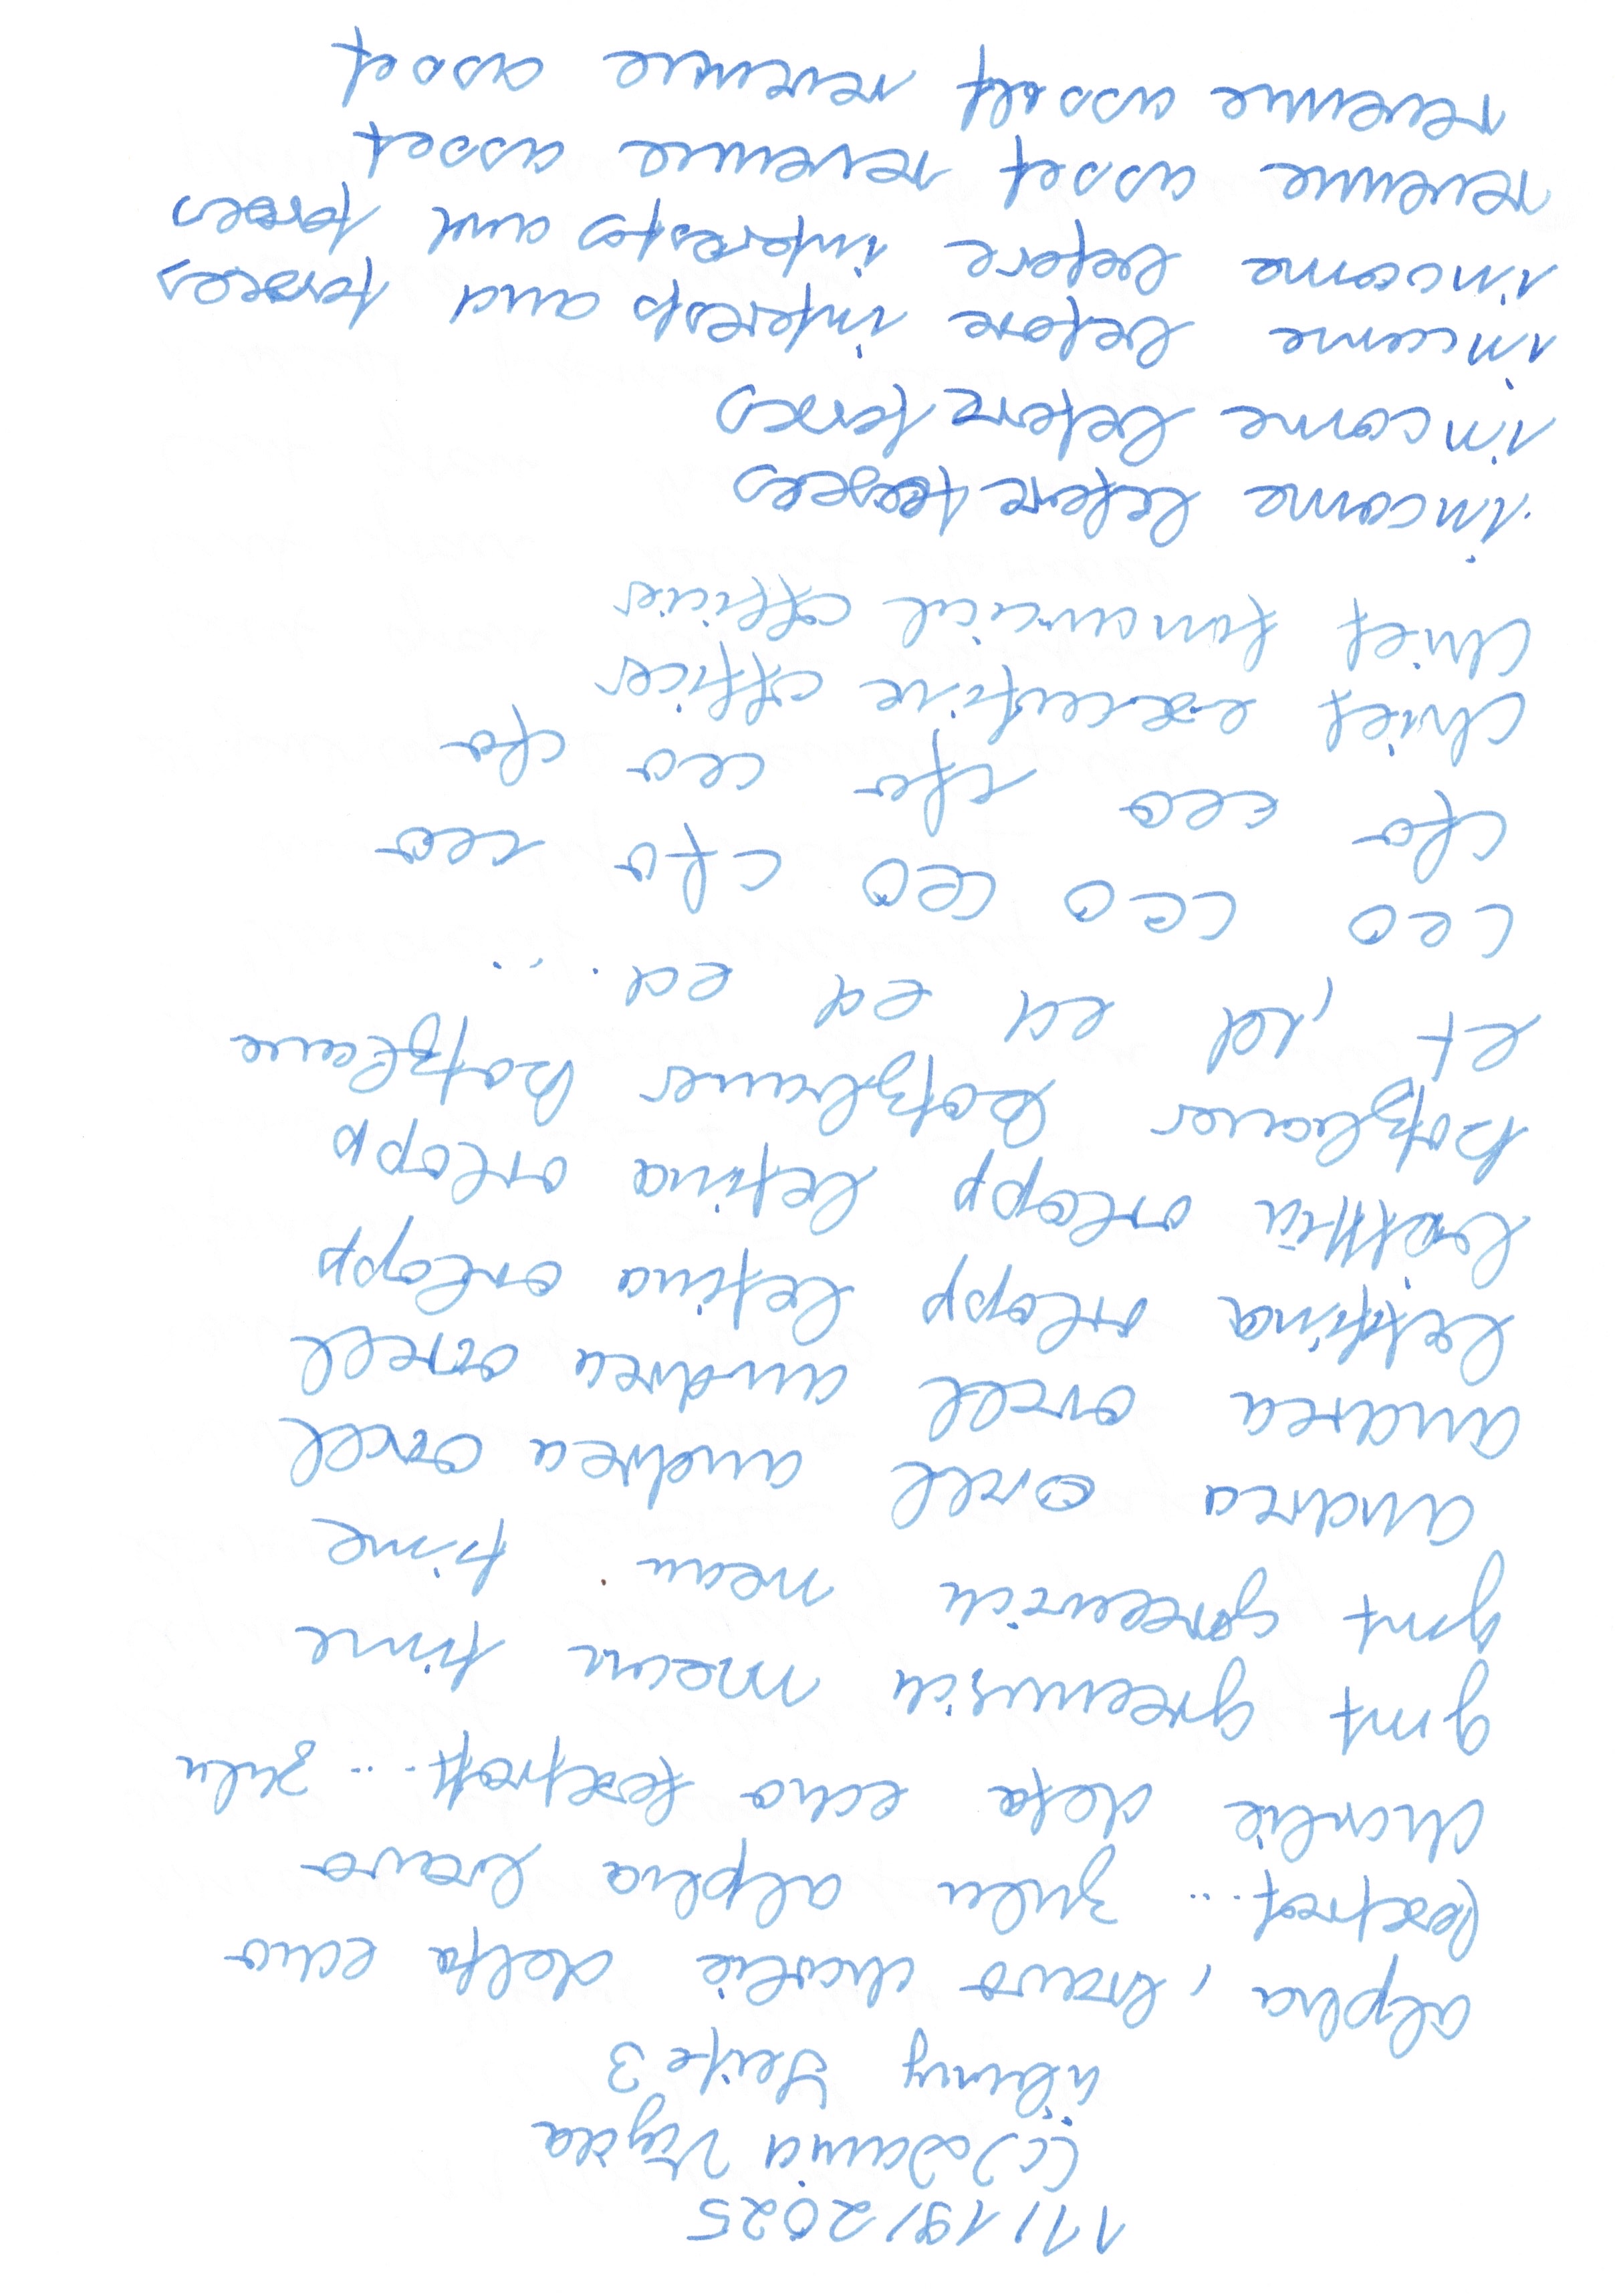 11/19/2025
(c) Dania Vijda
übung Seite 3
alpha, bravo charlie delta echo
foxtrot... zulu alpha bravo
charlie delta echo foxtrott... zulu
gmt greenwich mean time
gmt greenwich mean time
andrea orcel andrea orcel
andrea orcel andrea orcel
bettina orlopp bettina orlopp
bettina orlopp bettina orlopp
Botzbauer Botzbauer
et, eu eu eu ...
ceo ceo ceo cfo ceo
cfo ceo cfo ceo cfo
chief executive officer
chief financial officer
income before taxes
income before taxes
income before interests and taxes
income before interests and taxes
revenue asset revenue asset
revenue asset revenue asset